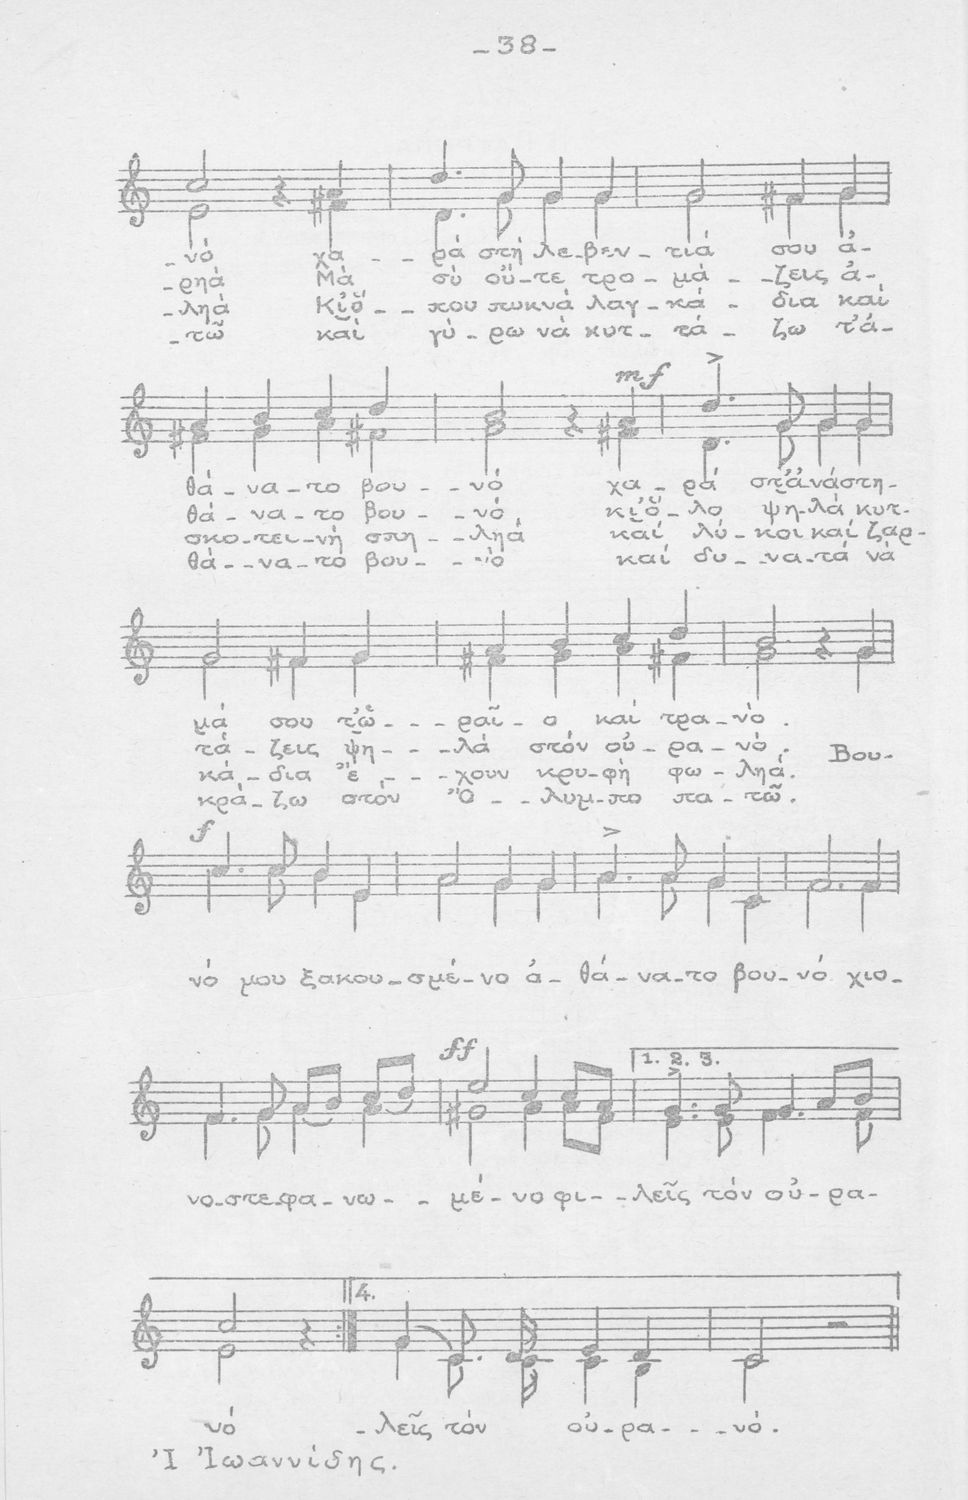 -38-
-νό χα - - ρά στή λε-βεν-τιά σου ἀ-
-ρηά Μά σύ οὔ-τε τρο-μά - -ζεις ἀ-
-ληά Κι ὅ - - που πυκνά λαγ-κά - δια καί
-τῶ καί γύ-ρω νά κυτ-τά - ζω τ' ἀ-
mf >
θά-να-το βου - -νό χα-ρά στ' ἀνάστη-
θά-να-το βου - -νό κι ὅ-λο ψη-λά κυτ-
σκο-τει-νή σπη - -ληά καί λύ-κοι καί ζαρ-
θά--να-το βου - - καί δυ--να-τά νά
μά σου τ' ὡ---ραῖ-ο καί τρα-νό.
τά-ζεις ψη---λά στόν οὐ-ρα-νό.
κά-δια ἔ---χουν κρυ-φή φω-ληά. Βου-
κρά-ζω στόν Ὄ--λυμ-πο πα-τῶ.
f >
νό μου ξακου-σμέ-νο ἀ-θά-να-το βου-νό χιο-
ff 1. 2. 3. >
νο-στε-φα-νω - - μέ-νο φι--λεῖς τόν οὐ-ρα-
4.
νό -λεῖς τόν οὐ-ρα---νό.
Ἰ Ἰωαννίδης.